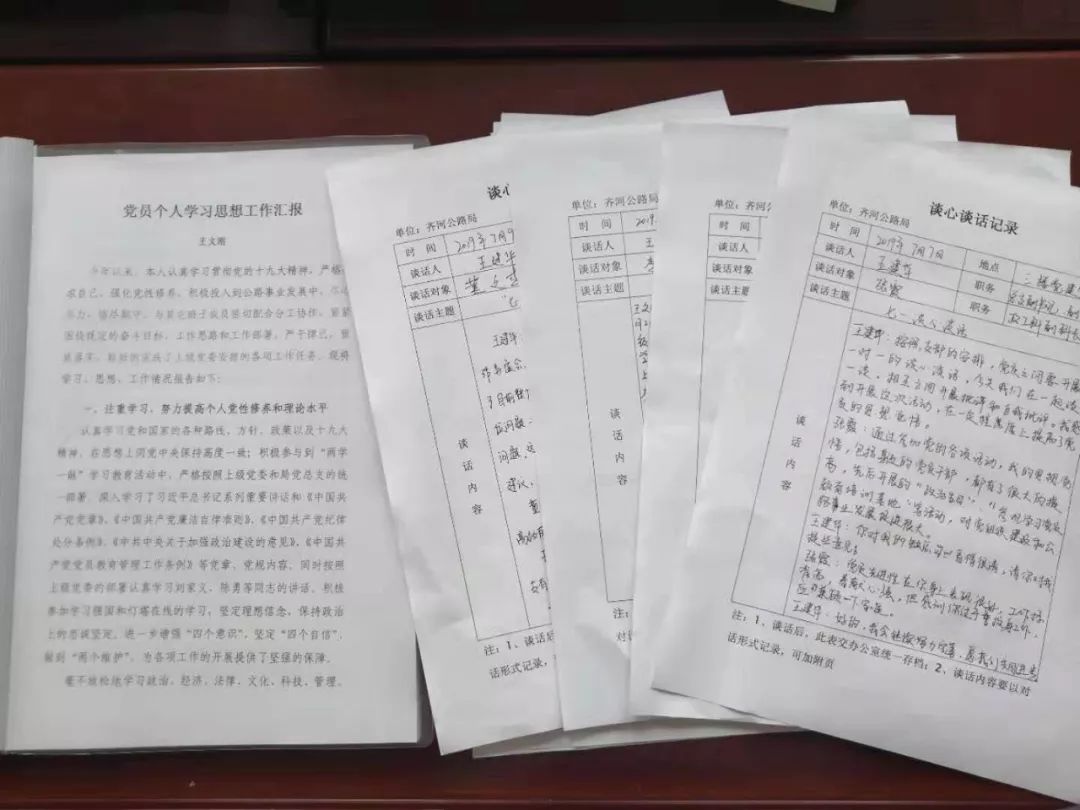 党员个人学习思想工作汇报
王文刚
今年以来，本人认真学习贯彻党的十九大精神，严格
求自己，强化党性修养，积极投入到公路事业发展中，尽
努力，恪尽职守，与其它班子成员密切配合分工协作，紧紧
围绕既定的奋斗目标、工作思路和工作部署，严于律己，狠
抓落实，较好的完成了上级党委安排的各项工作任务。现将
学习、思想、工作情况报告如下：
一、注重学习、努力提高个人党性修养和理论水平
认真学习党和国家的各种路线、方针、政策以及十九大
精神，在思想上同党中央保持高度一致；积极参与到“两学
一做”学习教育活动中，严格按照上级党委和局党总支的统
一部署，深入学习了习近平总书记系列重要讲话和《中国共
产党党章》、《中国共产党廉洁自律准则》、《中国共产党纪律
处分条例》、《中共中央关于加强政治建设的意见》、《中国共
产党党员教育管理工作条例》等党章、党规内容；同时按照
上级党委的部署认真学习刘家义、陈勇等同志的讲话。积极
参加学习强国和灯塔在线的学习，坚定理想信念，保持政治
上的忠诚坚定。进一步增强“四个意识”，坚定“四个自信”，
做到“两个维护”，为各项工作的开展提供了坚强的保障。
毫不放松地学习政治、经济、法律、文化、科技、管理、
谈心
单位：齐河公路局
时 间 2019年7月9
谈话人 王建华
谈话对象
谈话主题
谈话内容
注：1、谈话后
话形式记录，可加附页
单位：齐河公路局
时 间 2019.
谈话人 王
谈话对象
谈话主题
谈话内容
注：
单位：齐河公路
时 间
谈话人
谈话对象
谈话主题
谈话内容
谈心谈话记录
单位：齐河公路局
时 间 2019年7月7日 地点
谈话人 王建华 职务
谈话对象 张霞 职务 政工科副科长
谈话主题 七一谈心谈话
谈话内容
王建华：按照支部的安排，党员之间要开展
一对一的谈心谈话，今天我们在一起谈
一谈，相互之间开展批评和自我批评。我感
到开展这次活动，在一定程度上提高了党
员的思想觉悟。
张霞：通过参加党的各项活动，我的思想觉
悟，包括其他的党员干部，都有了很大的提
高，先后开展的“政治生日”、“参观学习党员
教育培训基地”等活动，对党组织建设和公
路事业发展促进很大。
王建华：你对我的缺点可以直接说说，请你对我
提些意见。
王建华：好的，我会继续努力完善，
注：1、谈话后，此表交办公室统一存档；2、谈话内容要以对
话形式记录，可加附页